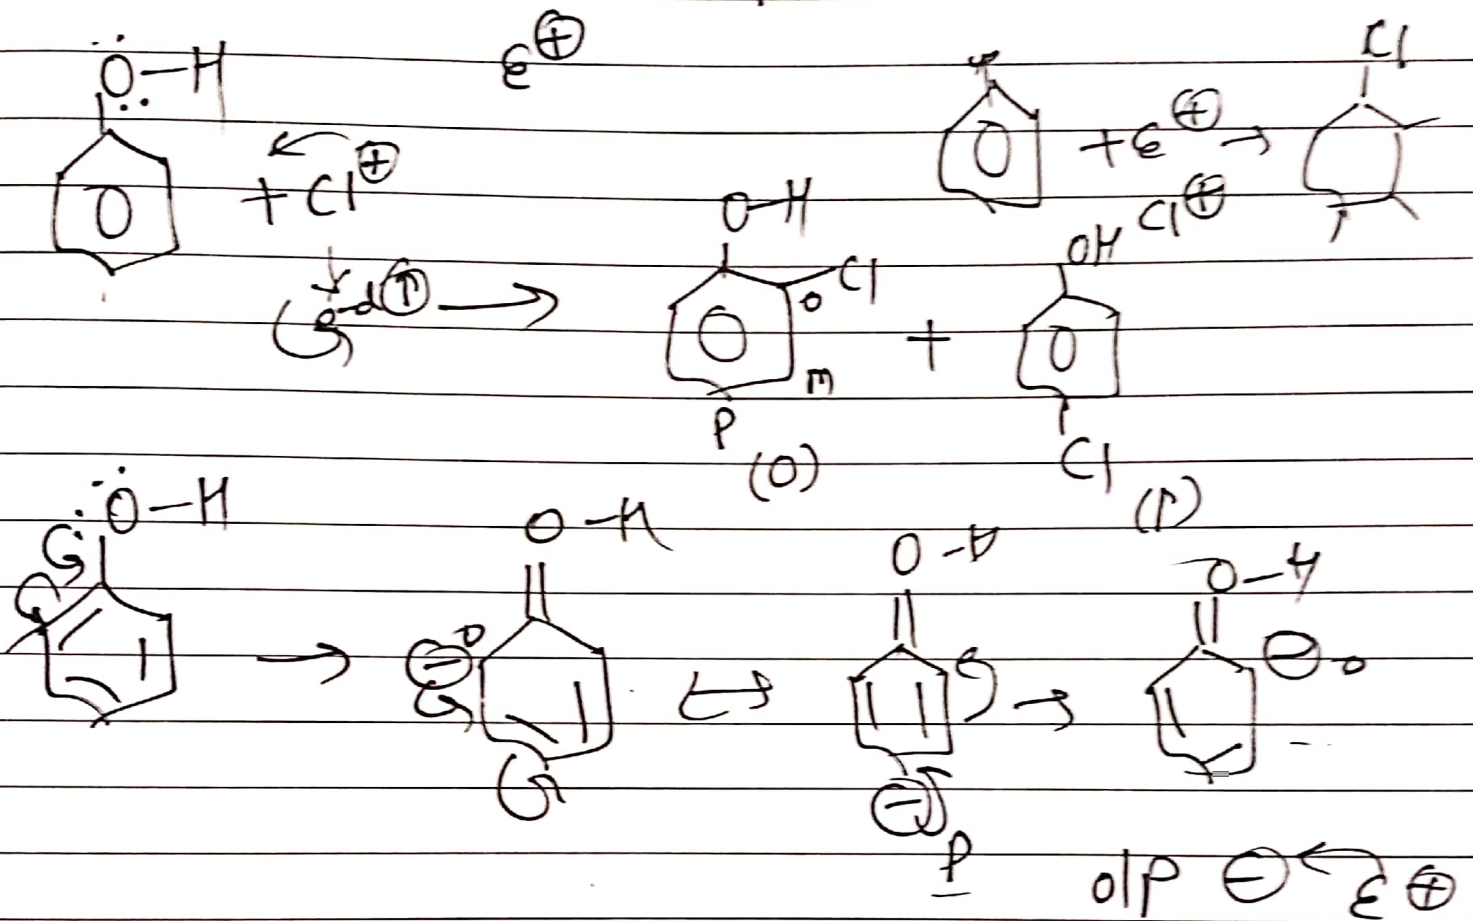 O–H
E⊕
Cl
+ E⊕ →
+ Cl⊕
O–H
Cl⊕
OH
e-d↑ →
Cl
o
+
m
P
(O)
Cl
(P)
O–H
O–H
O–H
O–H
→
⊖ o
↔
→
⊖ – o
⊖
P
o/p ⊖ ← E⊕